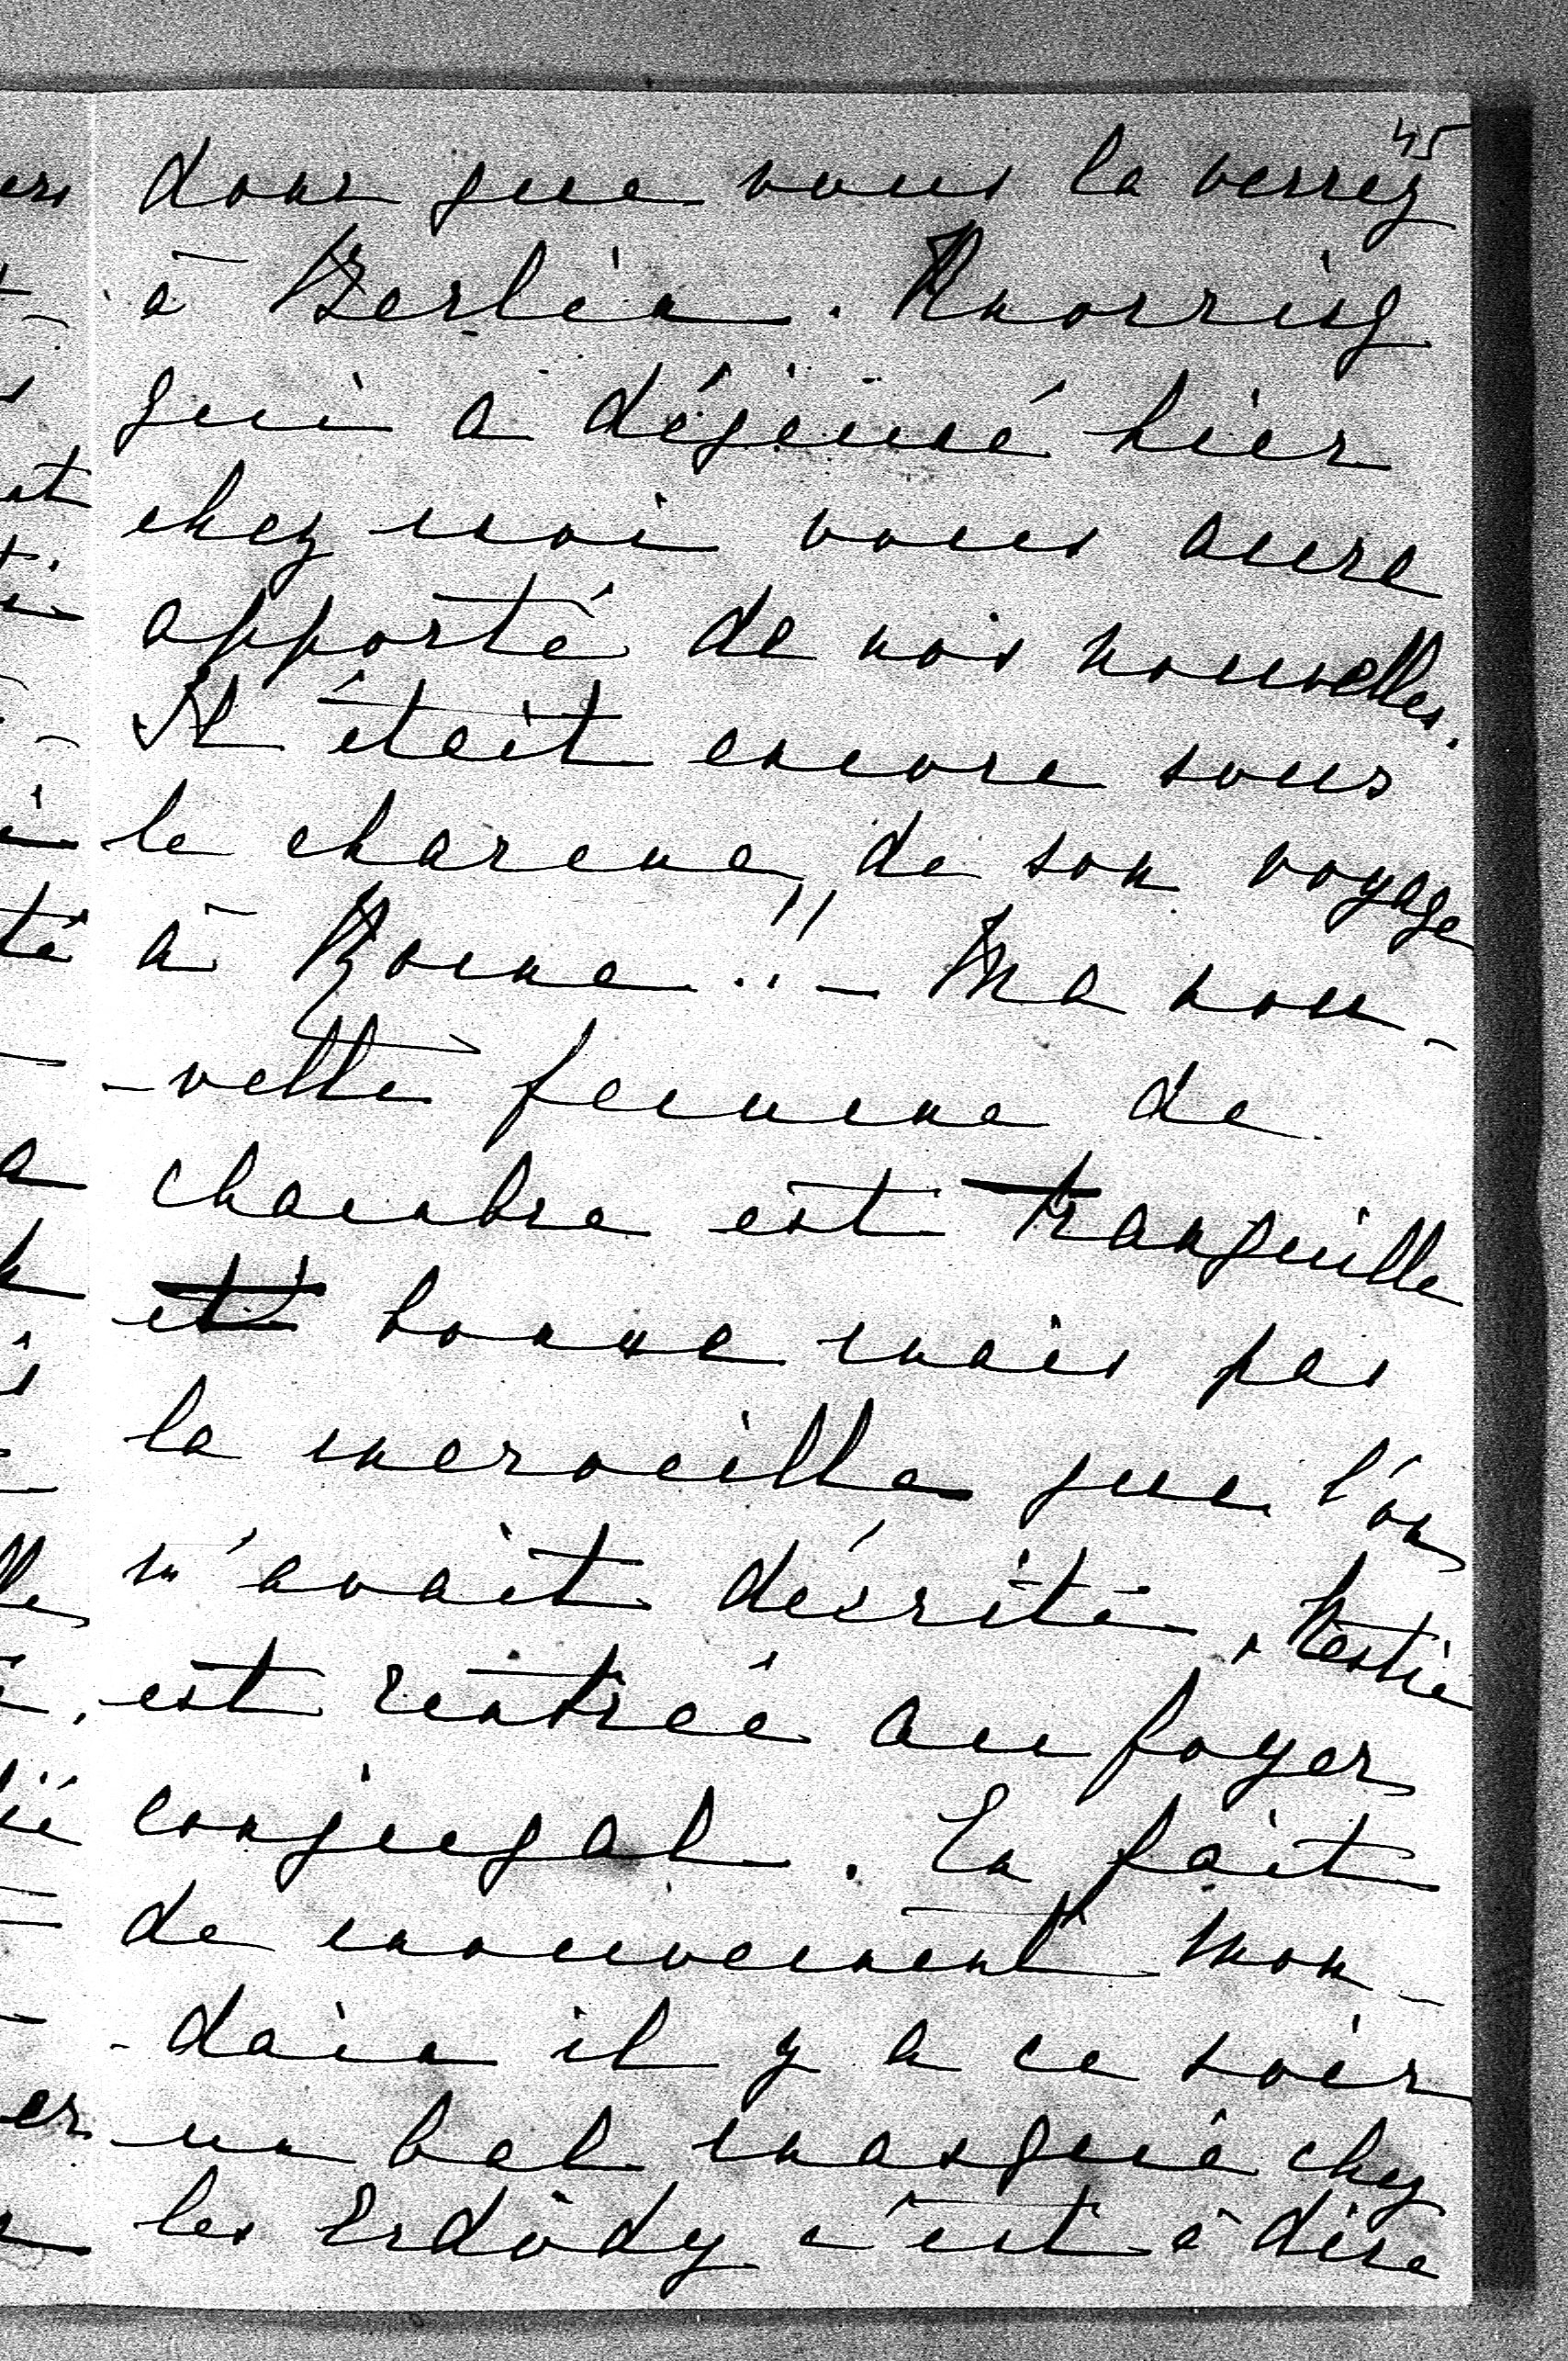 45
donc que vous la verrez
à Berlin. Knorring
qui a déjeuné hier
chez moi vous aura
apporté de nos nouvelles.
Il était encore sous
le charme de son voyage
à Rome!! – Ma nou-
-velle femme de
chambre est tranquille
et bonne mais pas
la merveille que l'on
m'avait décrite.
est rentrée au foyer
conjugal. En fait
de mouvement mon-
-dain il y a ce soir
un bal masqué chez
les Erdödy c'est à dire